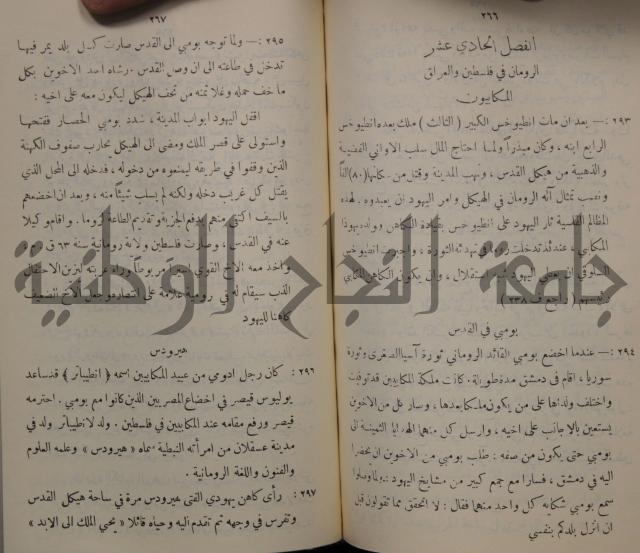 ٢٦٦
الفصل الحادي عشر
الرومان في فلسطين والعراق
المكابيون
٢٩٣ :— بعد ان مات انطيوخس الكبير ( الثالث ) ملك بعده انطيوخس
الرابع ابنه ، وكان مبذراً ولما احتاج المال سلب الاواني الفضية
والذهبية من هيكل القدس ، ونهب المدينة وقتل من سكانها (٨٠) الفاً
ونصب تمثال آله الرومان في الهيكل وامر اليهود ان يعبدوه . لهذه
المظالم القاسية ثار اليهود على انطيوخس بقيادة الكاهن وولده يهوذا
المكابي ، عندئذ تدخلت في تهدئة الثورة ، واجبرت انطيوخس
السلوقي ان يعطي اليهود استقلال ، وان يكون الكاهن المكابي
رئيسهم ( راجع ف ٢٣٨ )
بومبي في القدس
٢٩٤ :— عندما اخضع بومبي القائد الروماني ثورة آسيا الصغرى وثورة
سوريا ، اقام في دمشق مدة طويلة . كانت ملكة المكابيين قد توفيت
واختلف ولداها على من يكون ملكا بعدها ، وسار كل من الاخوين
يستعين بالاجانب على اخيه ، وارسل كل منهما الهدايا الثمينة الى
بومبي حتى يكون من صفه : طلب بومبي من الاخوين ان يحضرا
اليه في دمشق ، فسارا مع جم كبير من مشايخ اليهود : ولما وصلوا
سمع بومبي شكاية كل واحد منهما فقال : لا اتحقق مما تقولون قبل
ان انزل بلدكم بنفسي
٢٦٧
٢٩٥ :— ولما توجه بومبي الى القدس صارت كل بلد يمر فيها
تدخل في طاعته الى ان وصل القدس . رشاه احد الاخوين بكل
ما خف حمله وغلا ثمنه من تحف الهيكل ليكون معه على اخيه :
اقفل اليهود ابواب المدينة ، شدد بومبي الحصار ففتحها
واستولى على قصر الملك ومضى الى الهيكل يحارب صفوف الكهنة
الذين وقفوا في طريقه ليمنعوه من دخوله ، فدخله الى المحل الذي
يقتل كل غريب دخله ولكنه لم يسلب شيئاً منه ، وبعد ان اخضعهم
بالسيف اكتفى منهم بدفع الجزية وتقديم الطاعة لروما . واقام وكيلا
عنه في القدس ، وصارت فلسطين ولاية رومانية سنة ٦٣ ق . م
واخذ معه الاخ القوي مربوطاً وراء عربته ليزين الاحتفال
الذي سيقام له في رومية علامة على انتصاره وجعل الاخ الضعيف
كاهنا لليهود
هيرودس
٢٩٦ : كان رجل ادومي من عبيد المكابيين اسمه ( انطيباتر ) قد ساعد
يوليوس قيصر في اخضاع المصريين الذين كانوا مع بومبي . احترمه
قيصر ورفع مقامه عند المكابيين في فلسطين . ولد لانطيباتر ولد في
مدينة عسقلان من امرأته النبطية سماه « هيرودس » وعلمه العلوم
والفنون واللغة الرومانية .
٢٩٧ : رأى كاهن يهودي الفتى هيرودس مرة في ساحة هيكل القدس
وتفرس في وجهه ثم تقدم اليه وحياه قائلا « يحيى الملك الى الابد »
جامعة النجاح الوطنية